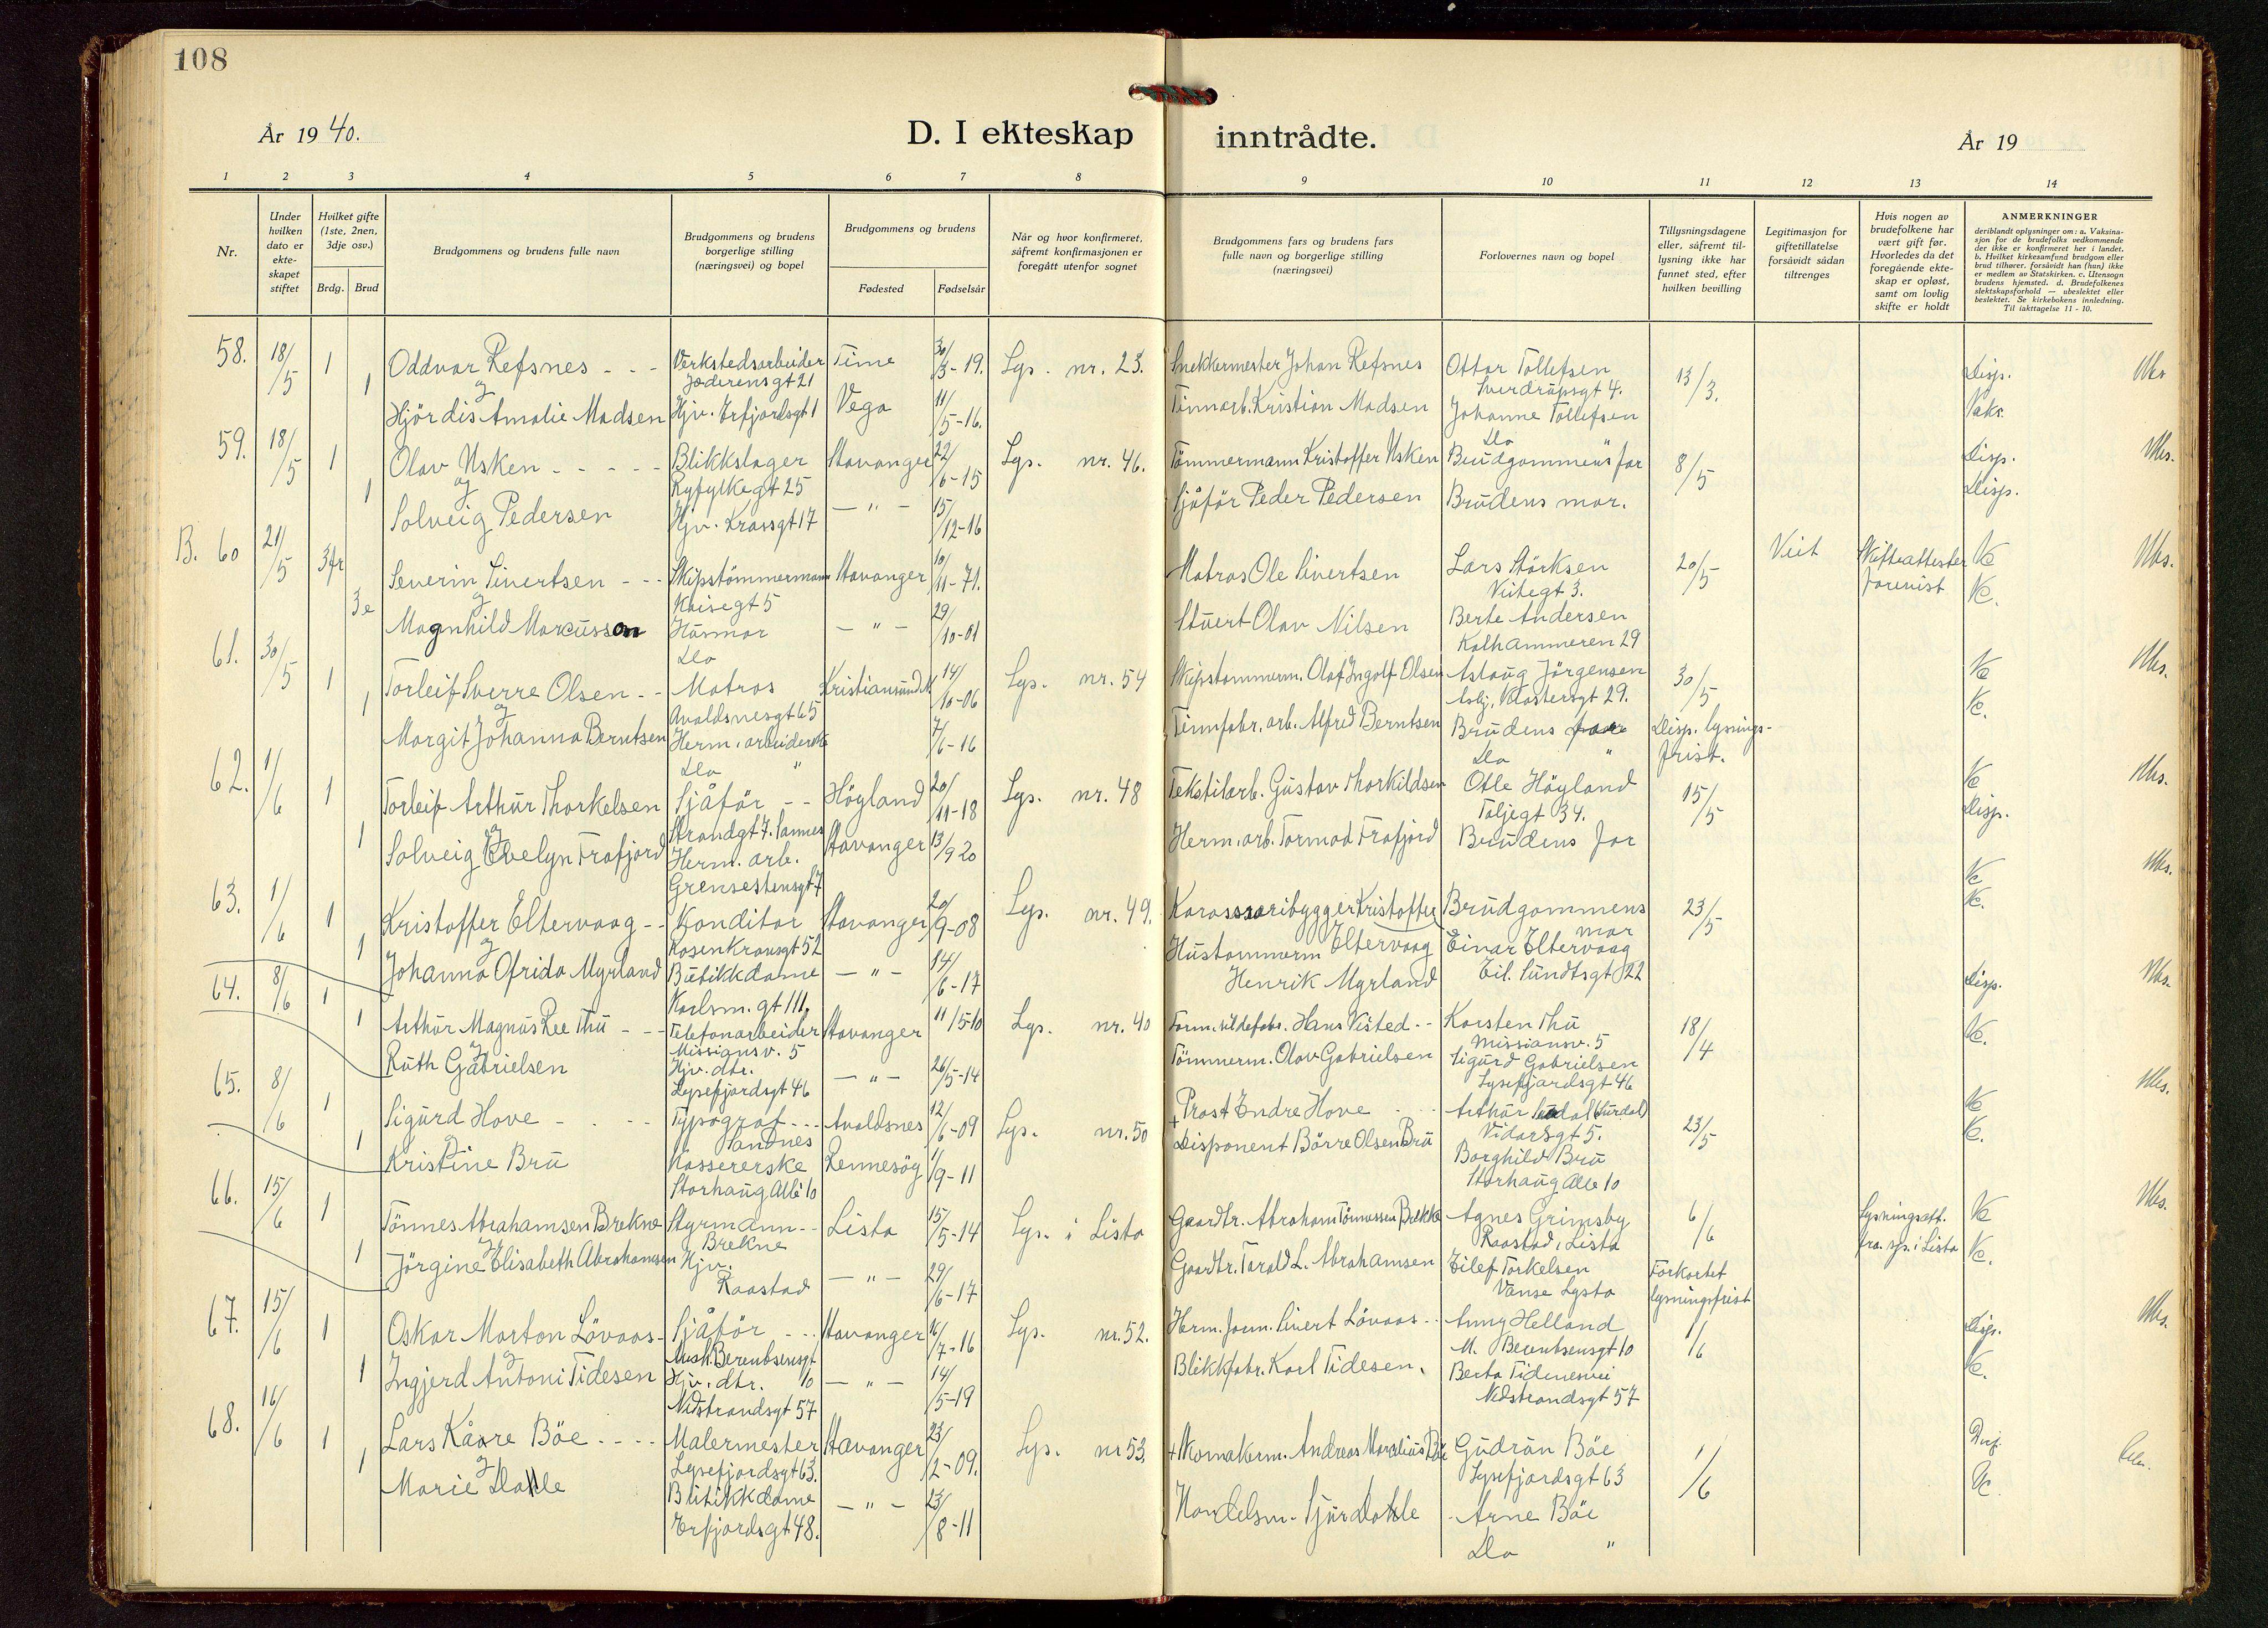 108
År 1940.
D. I ekteskap inntrådte.
År 19
1 2 3 4 5 6 7 8 9 10 11 12 13 14
Nr.
Under hvilken dato er ekteskapet stiftet
Hvilket gifte (1ste, 2nen, 3dje osv.)
Brdg. Brud
Brudgommens og brudens fulle navn
Brudgommens og brudens borgerlige stilling (næringsvei) og bopel
Brudgommens og brudens
Fødested Fødselsår
Når og hvor konfirmeret, såfremt konfirmasjonen er foregått utenfor sognet
Brudgommens fars og brudens fars fulle navn og borgerlige stilling (næringsvei)
Forlovernes navn og bopel
Tillysningsdagene eller, såfremt tillysning ikke har funnet sted, efter hvilken bevilling
Legitimasjon for giftetillatelse forsåvidt sådan tiltrenges
Hvis nogen av brudefolkene har vært gift før. Hvorledes da det foregående ekteskap er opløst, samt om lovlig skifte er holdt
ANMERKNINGER
deriblandt oplysninger om: a. Vaksinasjon for de brudefolks vedkommende der ikke er konfirmeret her i landet. b. Hvilket kirkesamfund brudgom eller brud tilhører, forsåvidt han (hun) ikke er medlem av Statskirken. c. Utensogn brudens hjemsted. d. Brudefolkenes slektskapsforhold — ubeslektet eller beslektet. Se kirkebokens innledning. Til iakttagelse 11 - 10.
58. 18/5 1 Oddvar Refsnes - - - Verkstedsarbeider Time 30/3-19. Lys. nr. 23. Snekkermester Johan Refsnes Ottar Tollefsen 13/3. Disp.
og Jæderensgt 21 Sverdrupsgt 4.
1 Hjördis Amalie Madsen Hjv. Erfjordsgt 1 Vega 11/5-16. Tinnarb. Kristian Madsen Johanne Tollefsen Vaks.
Do "
59. 18/5 1 Olav Usken - - - - - Blikkslager Stavanger 22/6-15 Lys. nr. 46. Tömmermann Kristoffer Usken Brudgommens far 8/5 Disp.
og Ryfylkegt 25
1 Solveig Pedersen Hjv. Krossgt 17 — " — 15/12-16 Sjåför Peder Pedersen Brudens mor. Disp.
B. 60 21/5 3 Severin Sivertsen - - - Skipstömmermann Stavanger 10/11-71. Matros Ole Sivertsen Lars Störksen 20/5 Skifteattester
og Kaisegt 5 Vitegt 3. forevist
3e Magnhild Marcusson Husmor — " — 29/10-01 Stuert Olav Nilsen Berte Andersen
Do Kalhammeren 29
61. 30/5 1 Torleif Sverre Olsen - - Matros Kristiansund N. 14/10-06 Lys. nr. 54 Skipstömmerm. Olaf Ingolf Olsen Aslaug Jörgensen 30/5
og Avaldsnesgt 65 Klostersgt 29.
1 Margit Johanna Berntsen Herm. arbeiderske 7/6-16 Tinnfabr. arb. Alfred Berntsen Brudens Disp. lysnings-
Do " Do " frist.
62. 1/6 1 Torleif Arthur Thorkelsen Sjåför - - Höyland 20/11-18 Lys. nr. 48 Tekstilarb. Gustav Thorkildsen Olle Höyland 15/5
og Strandgt 7. Sannes Taljegt 34.
1 Solveig Evelyn Frafjord Herm. arb. Stavanger 13/9 20 Herm. arb. Tormod Frafjord Brudens far Disp.
Grensestensgt 7
63. 1/6 1 Kristoffer Eltervaag - - Konditor Stavanger 20/9-08 Lys. nr. 49. Karosseribygger Kristoffer Eltervaag Brudgommens mor 23/5
og Rosenkransgt 52
1 Johanna Ofrida Myrland Butikkdame — " — 14/6-17 Hustömmerm Henrik Myrland Einar Eltervaag
Karlsm. gt 111. Eil. Sundtsgt 22
64. 8/6 1 Arthur Magnus Ree Thu - - - Telefonarbeider Stavanger 11/5-10 Lys. nr. 40 Hans Visted - - Karsten Thu 18/4 Disp.
og Missionsv. 5 Missionsv. 5
1 Ruth Gabrielsen Hjv. dtr. — " — 26/5-14 Tömmerm. Olav Gabrielsen Sigurd Gabrielsen
Lysefjordsgt 46 Lysefjordsgt 46
65. 8/6 1 Sigurd Hove - - - - Typograf - - - Avaldsnes 12/6-09 Lys. nr. 50 + Prost Endre Hove Arthur (Surdal) 23/5
og Sandnes Vidarsgt 5.
1 Kristine Bru Kassererske Rennesöy 1/9-11 Disponent Börre Olsen Bru Borghild Bru
Storhaug Allé 10 Storhaug Alle 10
66. 15/6 1 Tönnes Abrahamsen Brekne Styrmann - - Lista 15/5-14 Lys. i Lista Gaardbr. Abraham Tönnessen Brekke Agnes Grimsby 6/6 Lysningsatt.
og Brekne Raastad, Lista fra spr. i Lista
1 Jörgine Elisabeth Abrahamsen Hjv. — " — 29/6-17 Gaardbr. Tarald L. Abrahamsen Eilef Torkelsen Forkortet
Raastad Vanse Lysta lysningsfrist
67. 15/6 1 Oskar Morton Lövaas - Sjåför - - - Stavanger 16/7-16 Lys. nr. 52. Herm. form. Sivert Lövaas - - Anny Helland 1/6 Disp.
og Mich. Berentsensgt 10 M. Berentsensgt 10
1 Ingjerd Antoni Tidesen Hjv. dtr. — " — 14/5-19 Blikkfabr. Karl Tidesen. Berta Tidenesvei
Nedstrandsgt 57 Nedstrandsgt 57
68. 16/6 1 Lars Kåre Böe - - - - Malermester Stavanger 23/2-09. Lys. nr 53. + Skomakerm. Andreas Marelius Böe Gudrun Böe 1/6
og Lysefjordsgt 63. Lysefjordsgt 63
1 Marie Dahle Butikkdame — " — 23/8-11 Handelsm. Sjur Dahle Arne Böe
Erfjordsgt 48. Do "